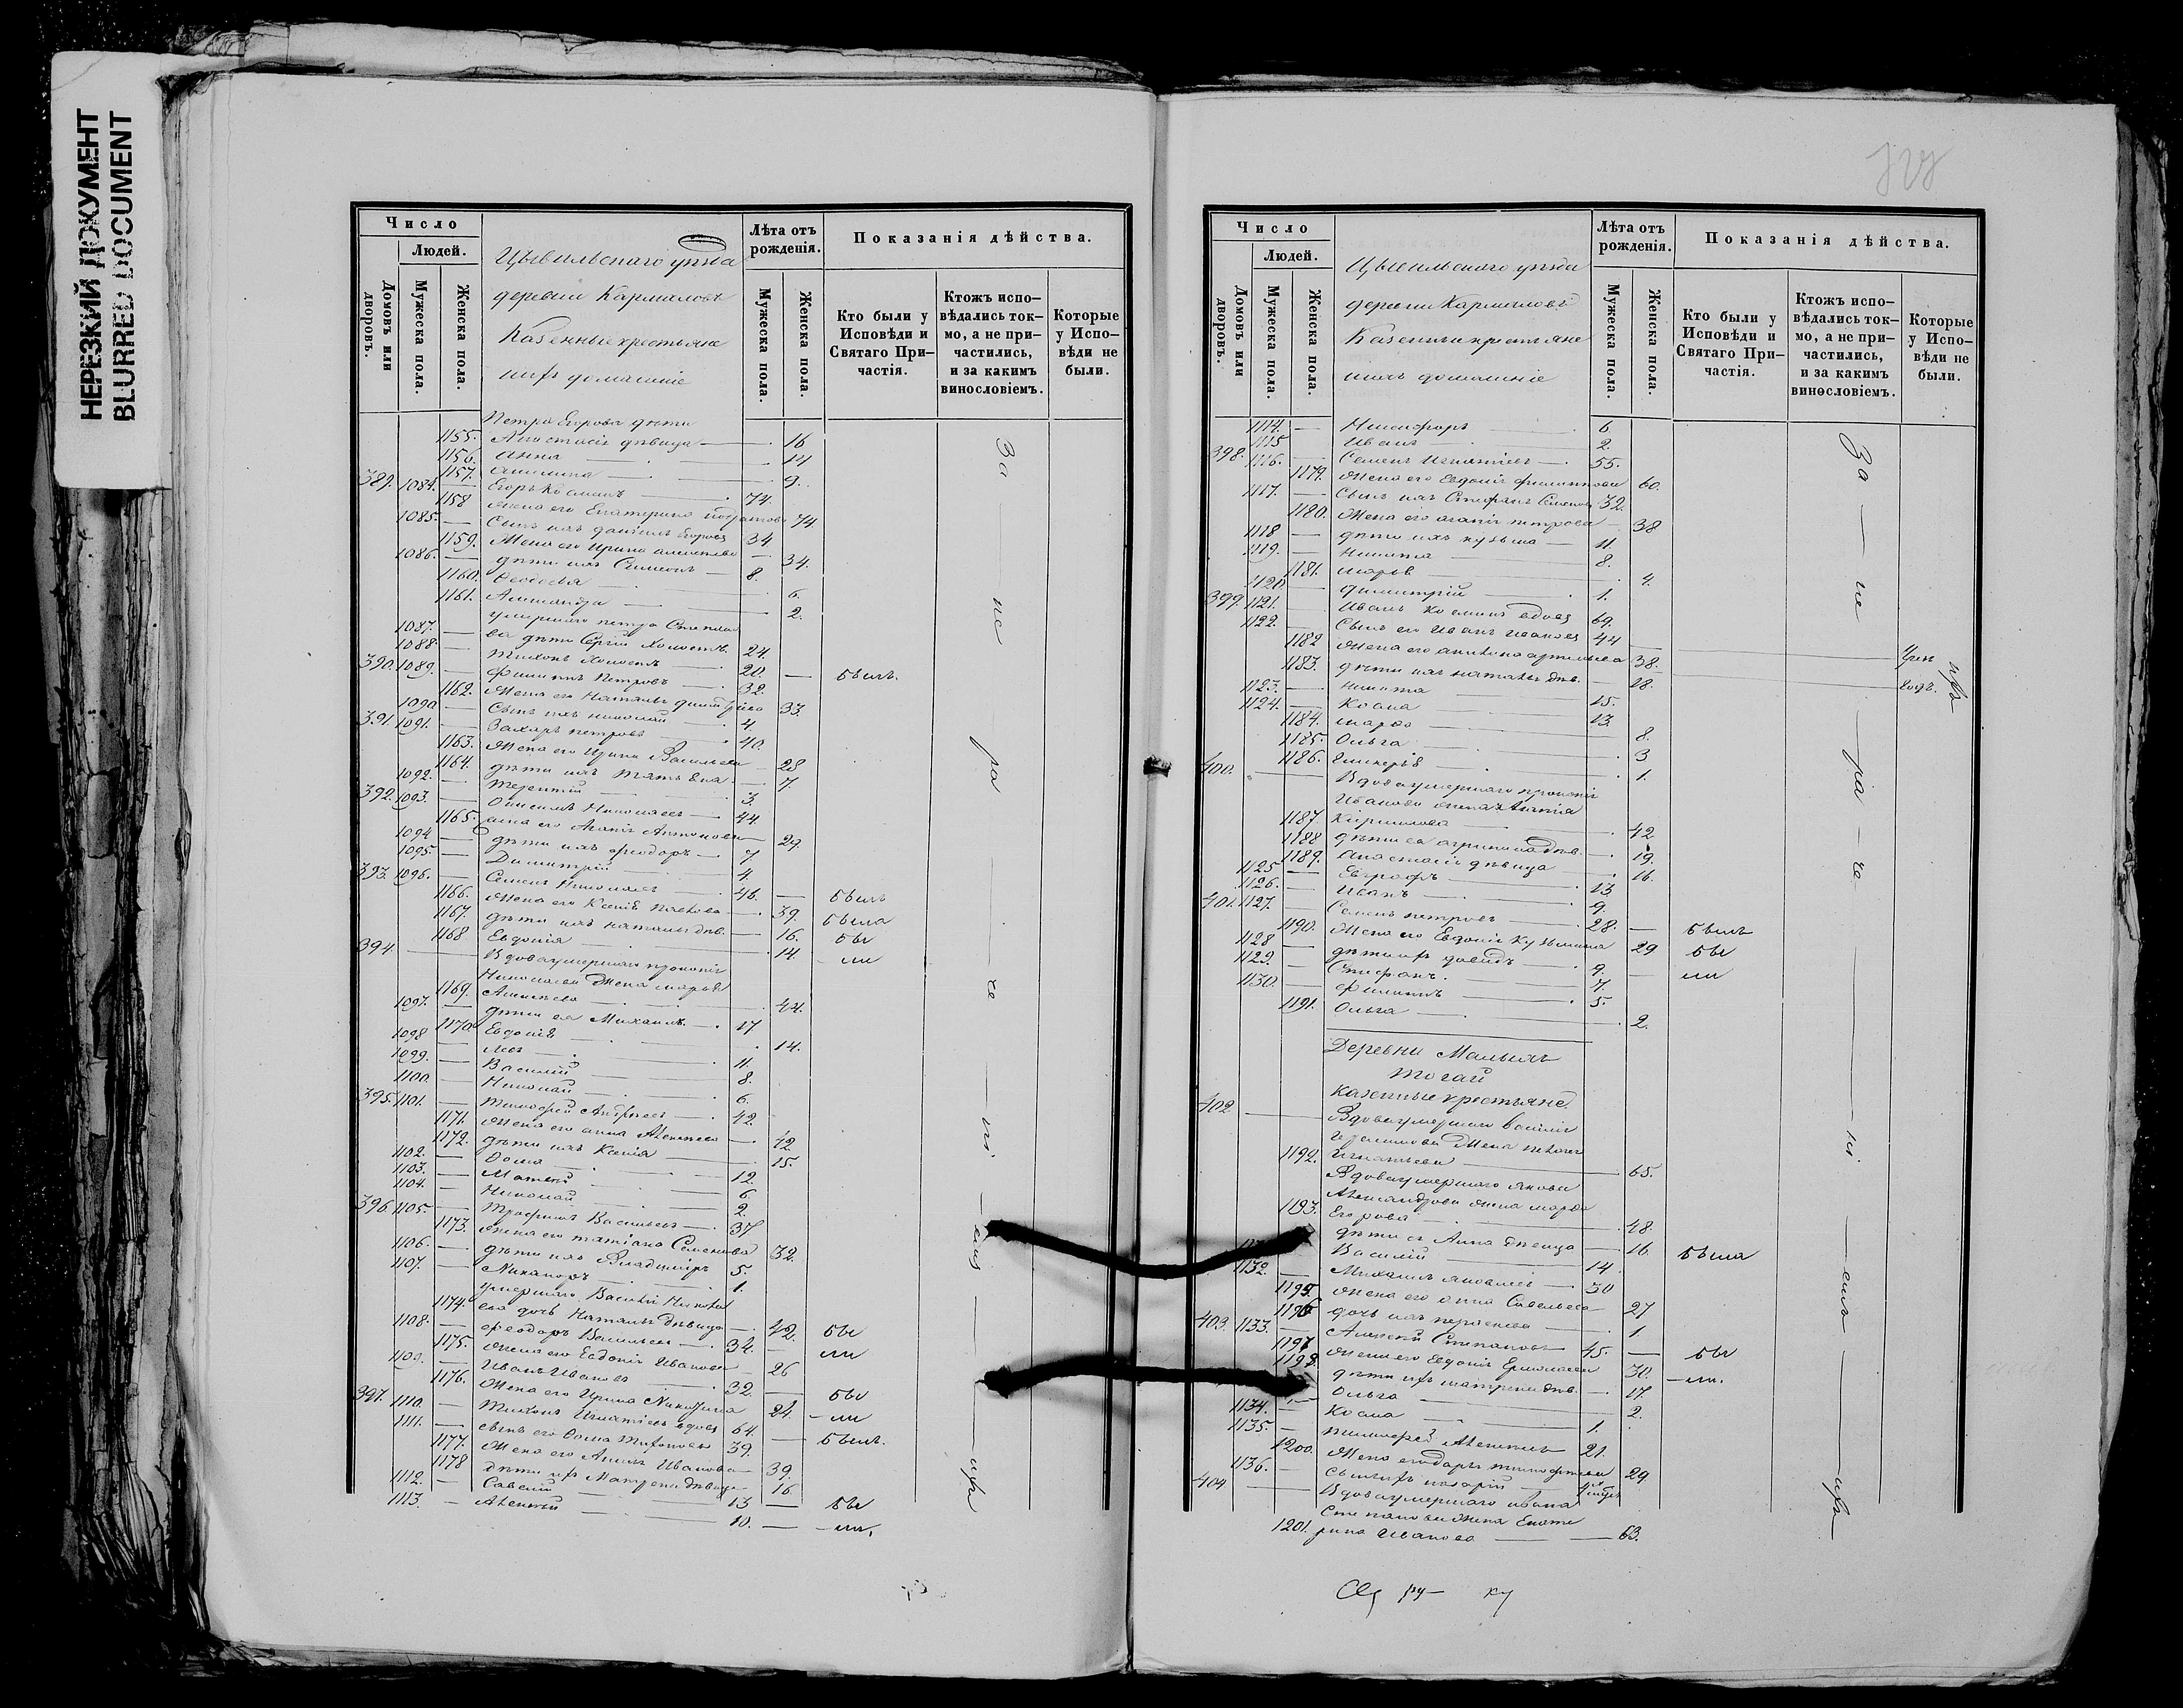 НЕРЕЗКИЙ ДОКУМЕНТ
BLURRED DOCUMENT
Число
Людей.
Домовъ или дворовъ.
Мужеска пола.
Женска пола.
Цывильскаго уѣзда
деревни Кармаловъ
Казенные крестьяне
ихъ домашніе
Лѣта отъ рожденія.
Мужеска пола.
Женска пола.
Показанія дѣйства.
Кто были у Исповѣди и Святаго Причастія.
Ктожъ исповѣдались токмо, а не причастились, и за какимъ винословіемъ.
Которые у Исповѣди не были.
Петра Егорова дѣти
1155. Анастасія дѣвица 16
1156. Анна 14
1157. Акилина 9.
389. 1084. Егоръ Косминъ 74
1158 Жена его Екатерина 74
1085. Сынъ ихъ Даніилъ Егоровъ 34
1159. Жена его Ирина 34.
1086. дѣти ихъ Симеонъ 8.
1160. Феодосья 6.
1161. Александра 2.
умершаго Петра Степано
1087. ва дѣти Сергій Холостъ. 24
1088. Тихонъ Холостъ 20.
390. 1089. Филиппъ Петровъ 32. былъ.
1162. Жена его Наталья 33
1090 Сынъ ихъ Николай 4.
391. 1091. Захаръ Петровъ 40.
1163. Жена его Ирина Васильева 28
1164. дѣти ихъ Татьяна 7.
1092. Терентій 3.
392. 1093. Онисимъ Николаевъ 44
1165. жена его Агапія Антонова 29
1094 дѣти ихъ Феодоръ 7
1095. Димитрій 4.
393. 1096. Семенъ Николаевъ 46. былъ
1166. Жена его Ксенія Павлова 39. была
1167. дѣти ихъ Наталья дѣв. 16. бы
1168 Евдокія 14. ли
394 Вдова умершаго Прокопія
Николаева Жена Марья
1169. Алексѣева 44.
1097. дѣти ея Михаилъ 17.
1170. Евдокія 14.
1098 Левъ 11.
1099. Василій 8.
1100. Николай 6.
395. 1101. Тимофей Андреевъ 42.
1171. Жена его Анна Алексѣева 42
1172. дѣти ихъ Ксенія 15.
1102. Фома 12.
1103. Матвей 6.
1104. Николай 2.
396. 1105. Трофимъ Васильевъ 37
1173. Жена его Татіана Семенова 32.
1106. дѣти ихъ Владиміръ 5.
1107. Никаноръ 1.
умершаго Василія
1174. дочь Наталья дѣвица 42. бы
1108. Феодоръ Васильевъ 34. ли
1175. Жена его Евдокія Иванова 26
1109. Иванъ Ивановъ 32. бы
1176. Жена его Ирина Никитина 24. ли
397. 1110. Тихонъ Игнатіевъ вдовъ 64. былъ.
1111. сынъ его Фома Тихоновъ 39.
1177. Жена его Иванова 39.
1178 дѣти ихъ Матрена дѣвица 16
1112. Савелій 13 бы
1113. Алексей 10. ли.
За не ра че ні емъ ихъ
Число
Людей.
Домовъ или дворовъ.
Мужеска пола.
Женска пола.
Цывильскаго уѣзда
деревни Кармаловъ
Казенные крестьяне
ихъ домашніе
Лѣта отъ рожденія.
Мужеска пола.
Женска пола.
Показанія дѣйства.
Кто были у Исповѣди и Святаго Причастія.
Ктожъ исповѣдались токмо, а не причастились, и за какимъ винословіемъ.
Которые у Исповѣди не были.
1114. Никифоръ 6
1115 Иванъ 2.
398. 1116. Семенъ Игнатіевъ 55.
1179. Жена его Евдокія Филиппова 60.
1117. Сынъ ихъ Стефанъ Семеновъ 32.
1180. Жена его Агапія Петрова 38
1118 дѣти ихъ Кузьма 11.
1119. Никита 8.
1181. Марья 4.
1120. Димитрій 1.
399. 1121. Иванъ Косминъ вдовъ 69.
1122. Сынъ его Иванъ Ивановъ 44
1182 Жена его Артемьева 38.
1183. дѣти ихъ Наталья дѣв. 18.
1123. Никита 15.
1124. Косма 13
1184. Марфа 8.
1185. Ольга 3
1186. Гликерья 1.
400. Вдова умершаго Прокопія
Иванова жена
1187. Кириллова 42
1188 дѣти ея Агрипина дѣв. 19.
1189. Анастасія дѣвица 16.
1125 Евграфъ 13
1126. Иванъ 9.
401. 1127. Семенъ Петровъ 28. былъ
1190. Жена его Евдокія Кузьмина 29 бы
1128 дѣти ихъ Давидъ 9. ли
1129. Стефанъ. 7.
1130. Филиппъ 5.
1191. Ольга 2.
Деревни Малыхъ
Тогай
Казенные крестьяне
402 Вдова умершаго Василія
Герасимова Жена
1192. Игнатьева 65.
Вдова умершаго Якова
Александрова жена Марфа
1193. Егорова 48.
дѣти ея Анна дѣвица 16. была
Василій 14.
1132. Михаилъ Яковлевъ 30
1195. Жена его Анна Савельева 27
1196 дочь ихъ 1.
403. 1133. Алексей Степановъ 45. бы
1197 Жена его Евдокія Ермолаева 30. ли.
1198. дѣти ихъ Матрена дѣв. 17.
Ольга 2.
1134. Косма 1.
1135. Тимофей Алексеевъ 21.
1200. Жена его Дарья Тимофеева 29
1136. Сынъ ихъ Назарій
404 Вдова умершаго Ивана
Степанова жена Екате
1201. рина Иванова 63.
За не ра че ні емъ ихъ